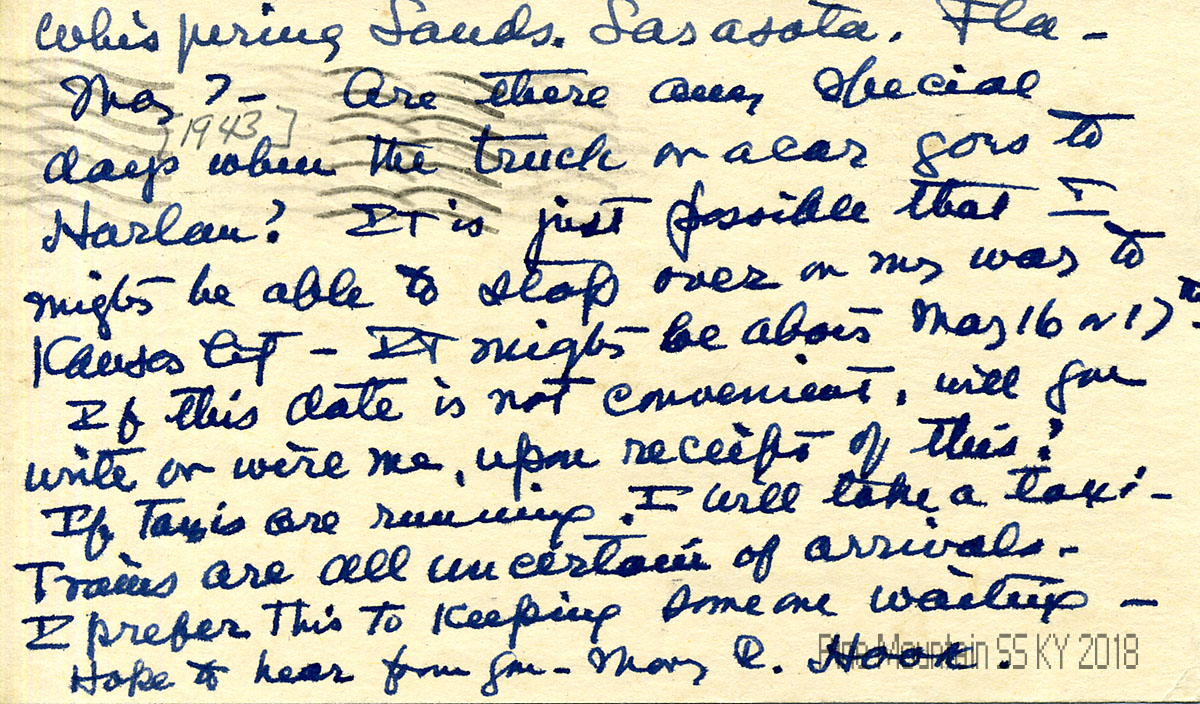 Whispering Sands. Sarasota. Fla -
May 7 - Are there any special
[1943]
days when the truck or a car goes to
Harlan? It is just possible that I
might be able to stop over on my way to
Kansas City - It might be about May 16 or 17th.
If this date is not convenient, will you
write or wire me, upon receipt of this?
If Taxis are running, I will take a taxi -
Trains are all uncertain of arrivals -
I prefer This to keeping some one waiting -
Hope to hear from you - Mary R. Hook.
Pine Mountain SS KY 2018